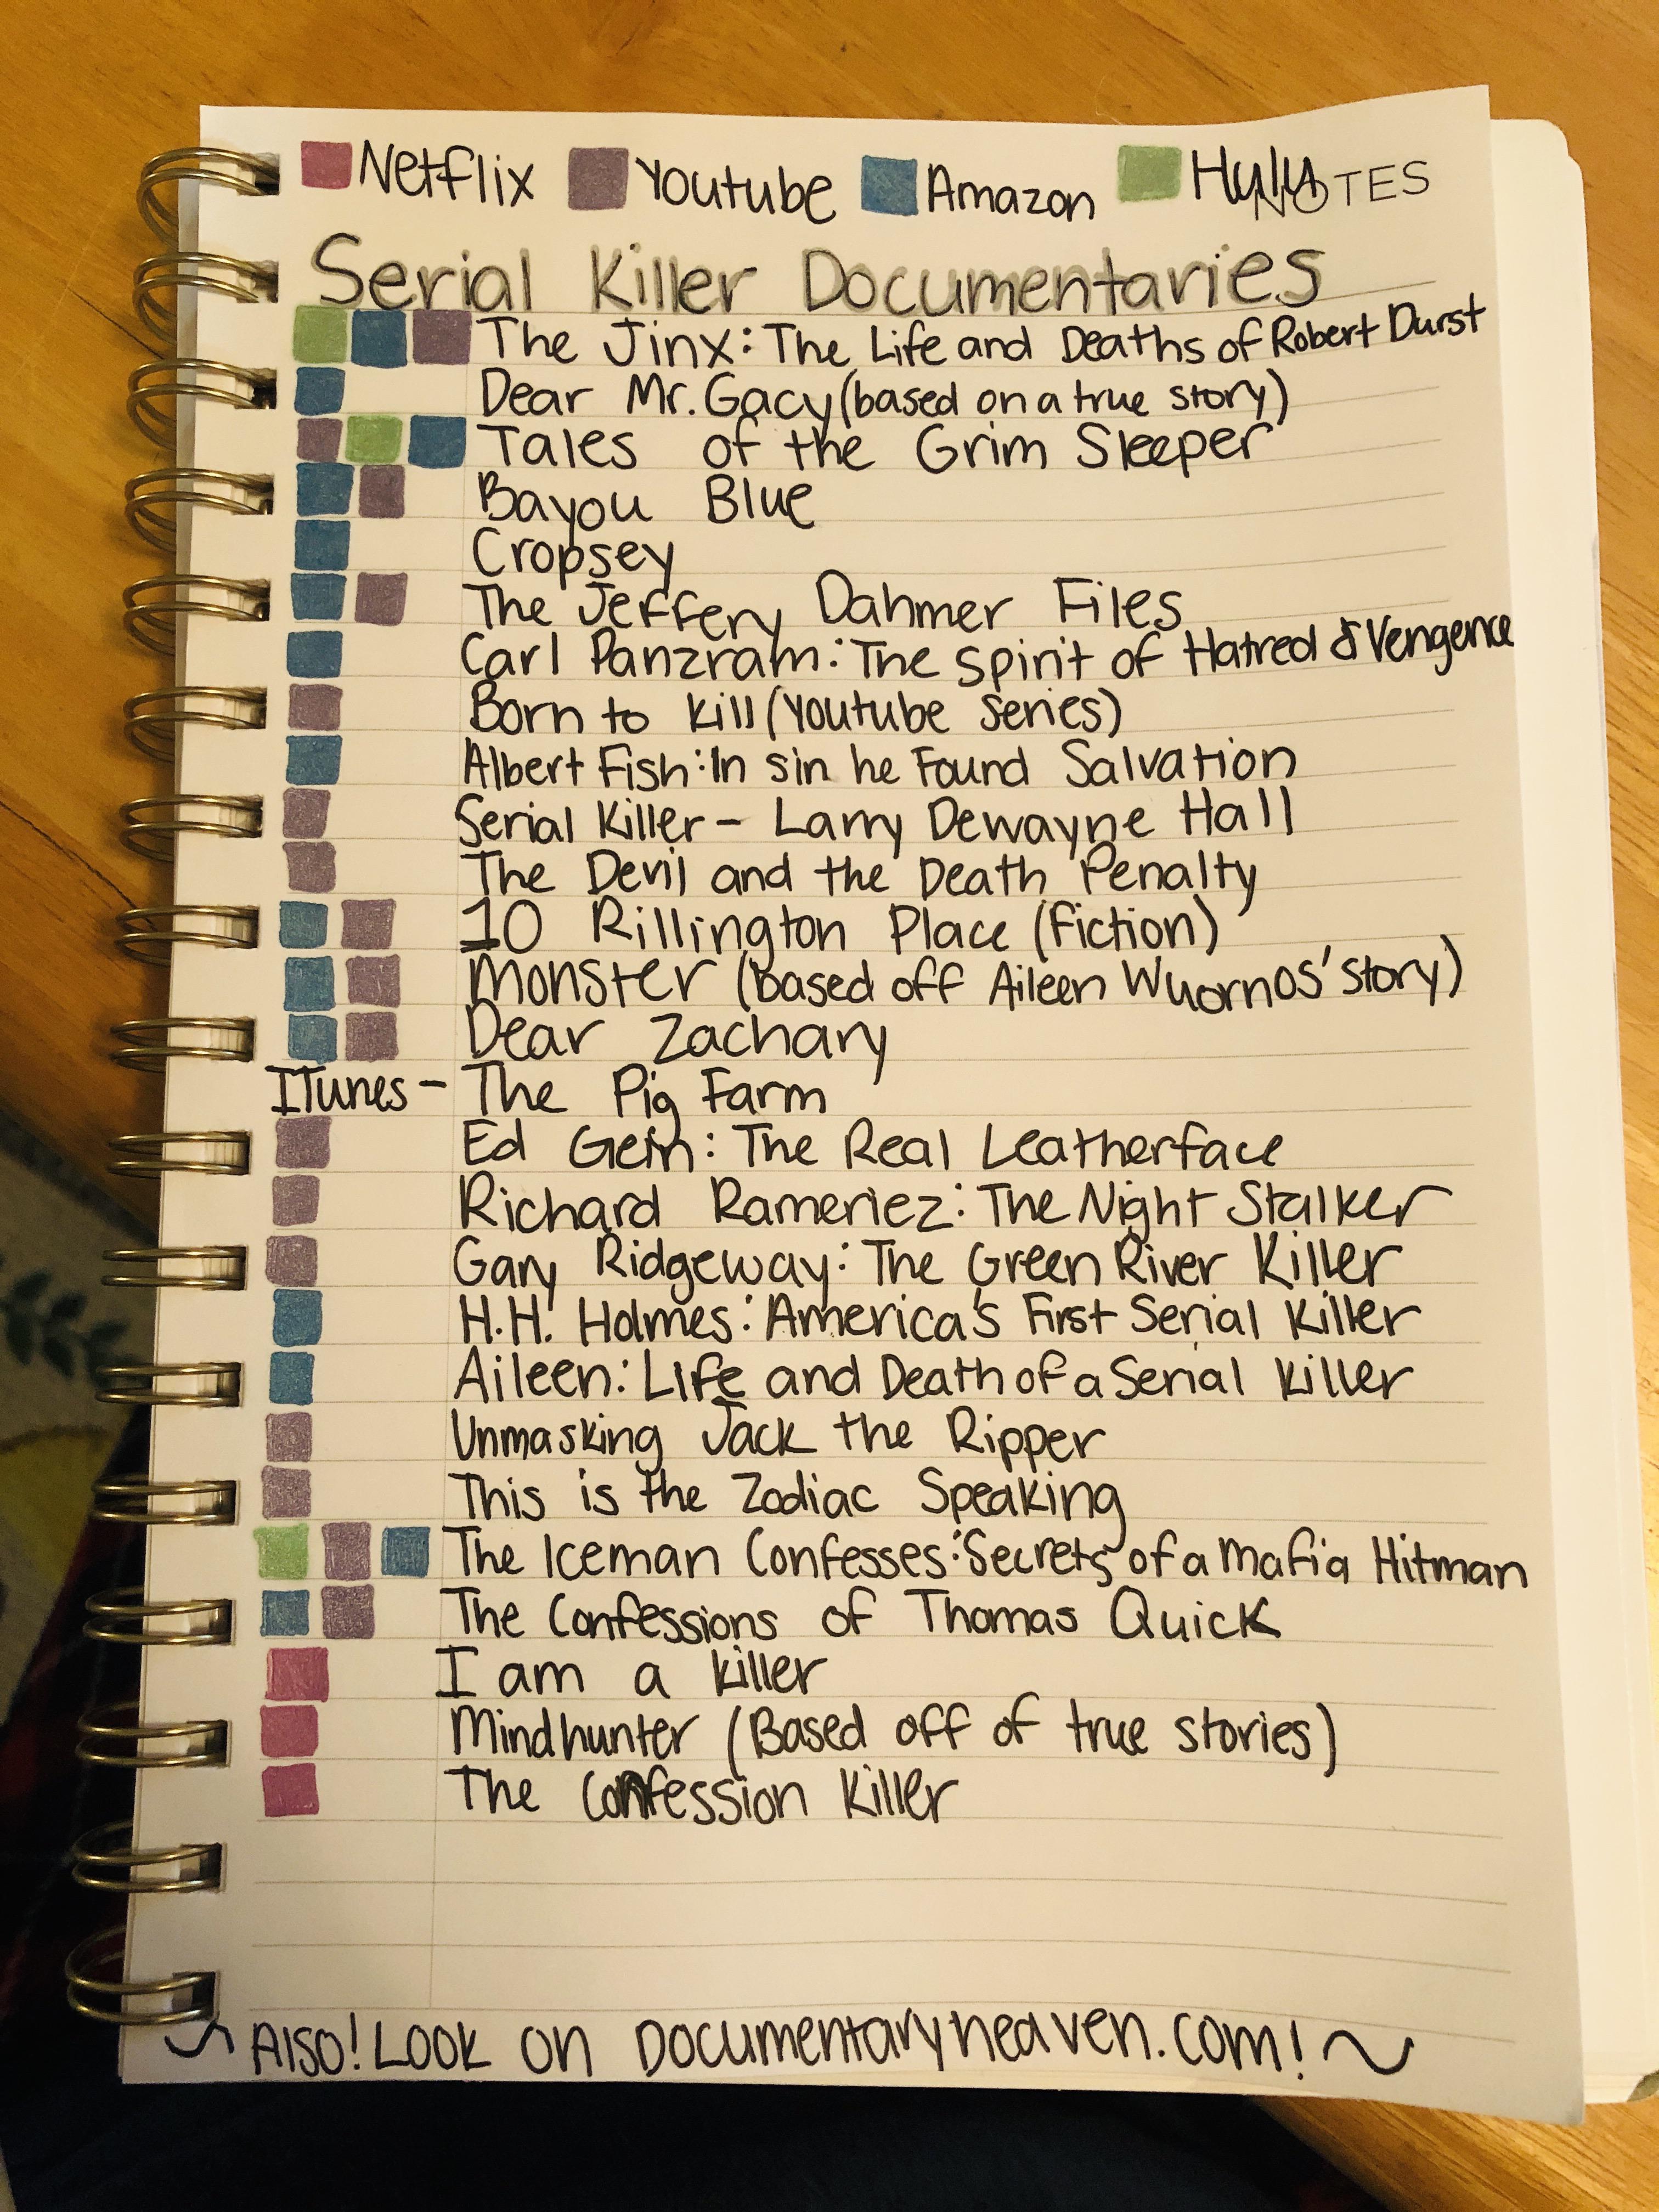 Netflix Youtube Amazon Hulu NOTES
Serial Killer Documentaries
The Jinx: The Life and Deaths of Robert Durst
Dear Mr. Gacy (based on a true story)
Tales of the Grim Sleeper
Bayou Blue
Cropsey
The Jeffery Dahmer Files
Carl Panzram: The Spirit of Hatred & Vengence
Born to Kill (Youtube Series)
Albert Fish: In sin he Found Salvation
Serial Killer - Larry Dewayne Hall
The Devil and the Death Penalty
10 Rillington Place (Fiction)
Monster (based off Aileen Wuornos' story)
Dear Zachary
ITunes - The Pig Farm
Ed Gein: The Real Leatherface
Richard Rameriez: The Night Stalker
Gary Ridgeway: The Green River Killer
H.H. Holmes: America's First Serial Killer
Aileen: Life and Death of a Serial Killer
Unmasking Jack the Ripper
This is the Zodiac Speaking
The Iceman Confesses: Secrets of a Mafia Hitman
The Confessions of Thomas Quick
I am a killer
Mindhunter (Based off of true stories)
The Confession Killer
Also! Look on Documentaryheaven.com!